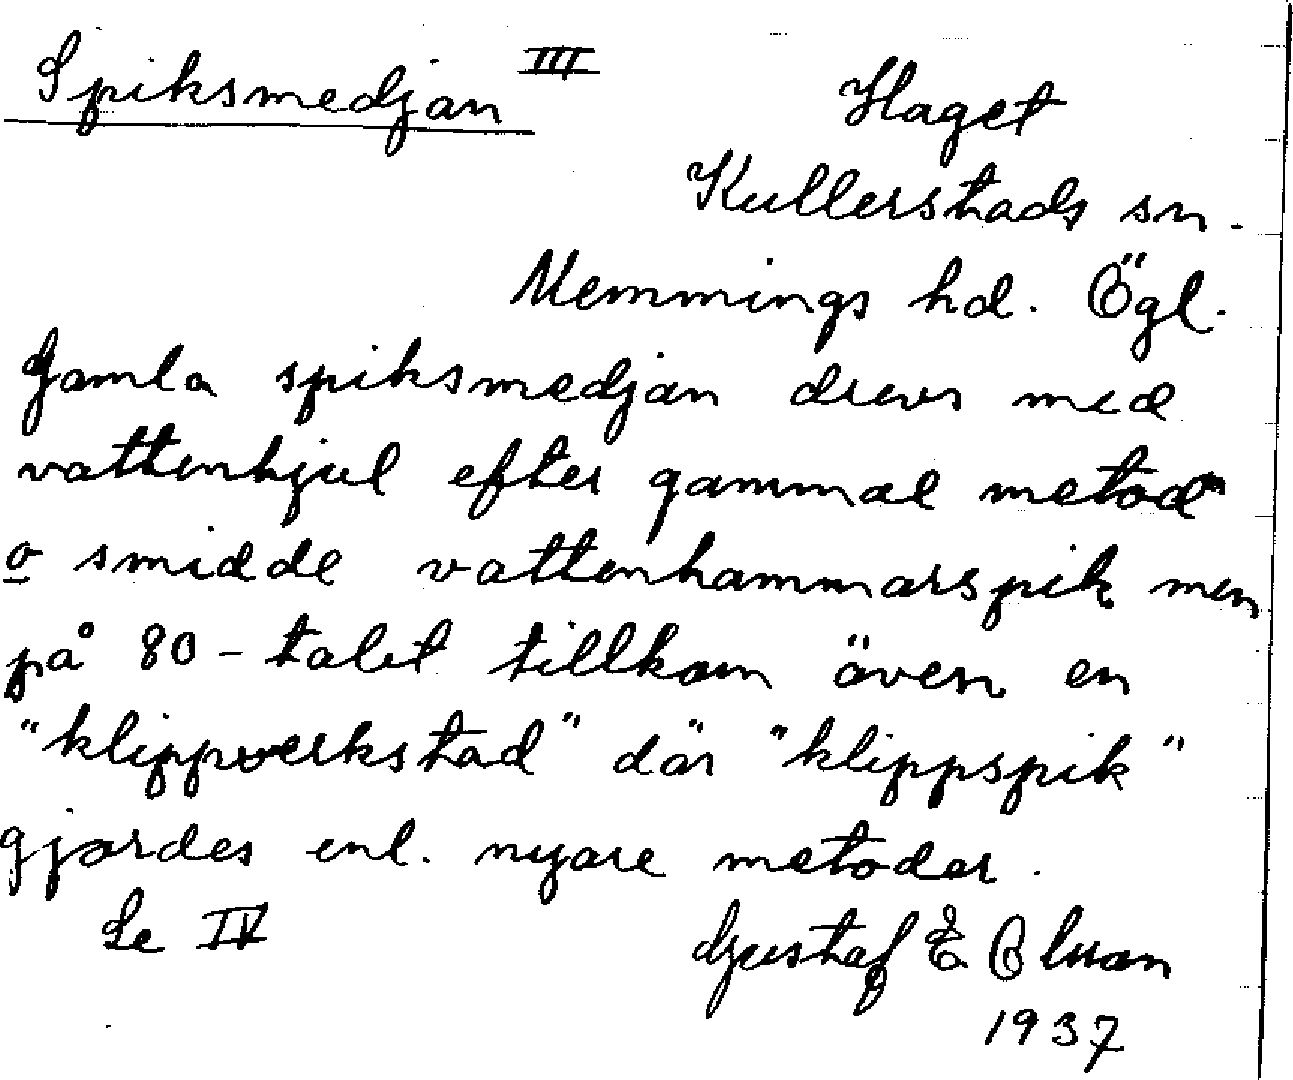 Spiksmedjan III
Haget
Kullerstads sn.
Memmings hd. Ögl.
Gamla spiksmedjan drevs med
vattenhjul efter gammal metod
o smidde vattenhammarspik men
på 80-talet tillkom även en
"klippverkstad" där "klippspik"
gjordes enl. nyare metoder.
Se IV
Gustaf E.
1937